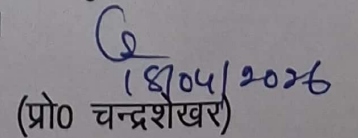 18/04/2026
(प्रो0 चन्द्रशेखर)